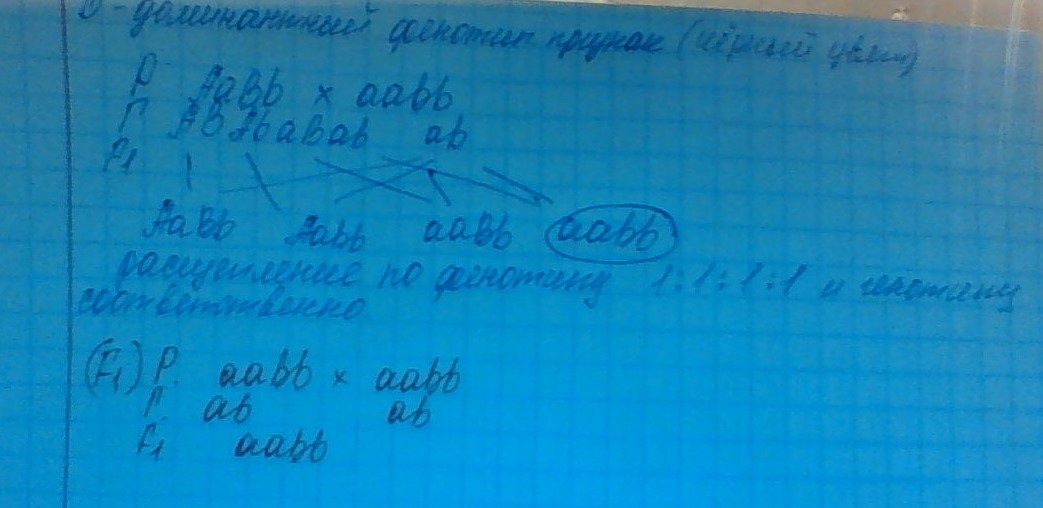 доминантный фенотип признак (чёрный цвет)
P AaBb × aabb
Г AB Ab aB ab ab
F1
AaBb Aabb aaBb aabb
расщепление по фенотипу 1:1:1:1 и генотипу
соответственно
(F1) P. aabb × aabb
Г. ab ab
F1 aabb